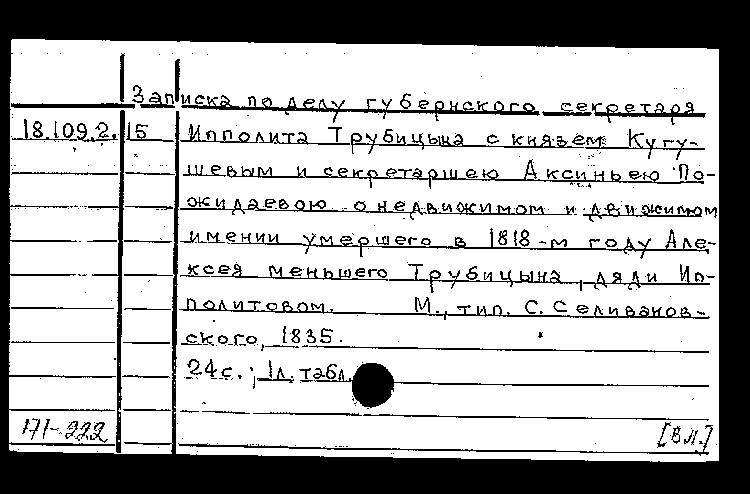 Записка по делу губернского секретаря
18.109.2.15 Ипполита Трубицына с князем Кугу-
шевым и секретаршею Аксиньею По-
жидаевою о недвижимом и движимом
имении умершего в 1818-м году Але-
ксея меньшего Трубицына, дяди Ип-
политовом. М., тип. С. Селиванов-
ского, 1835.
24 с.; 1 л. табл.
171-222 [ВЛ.]